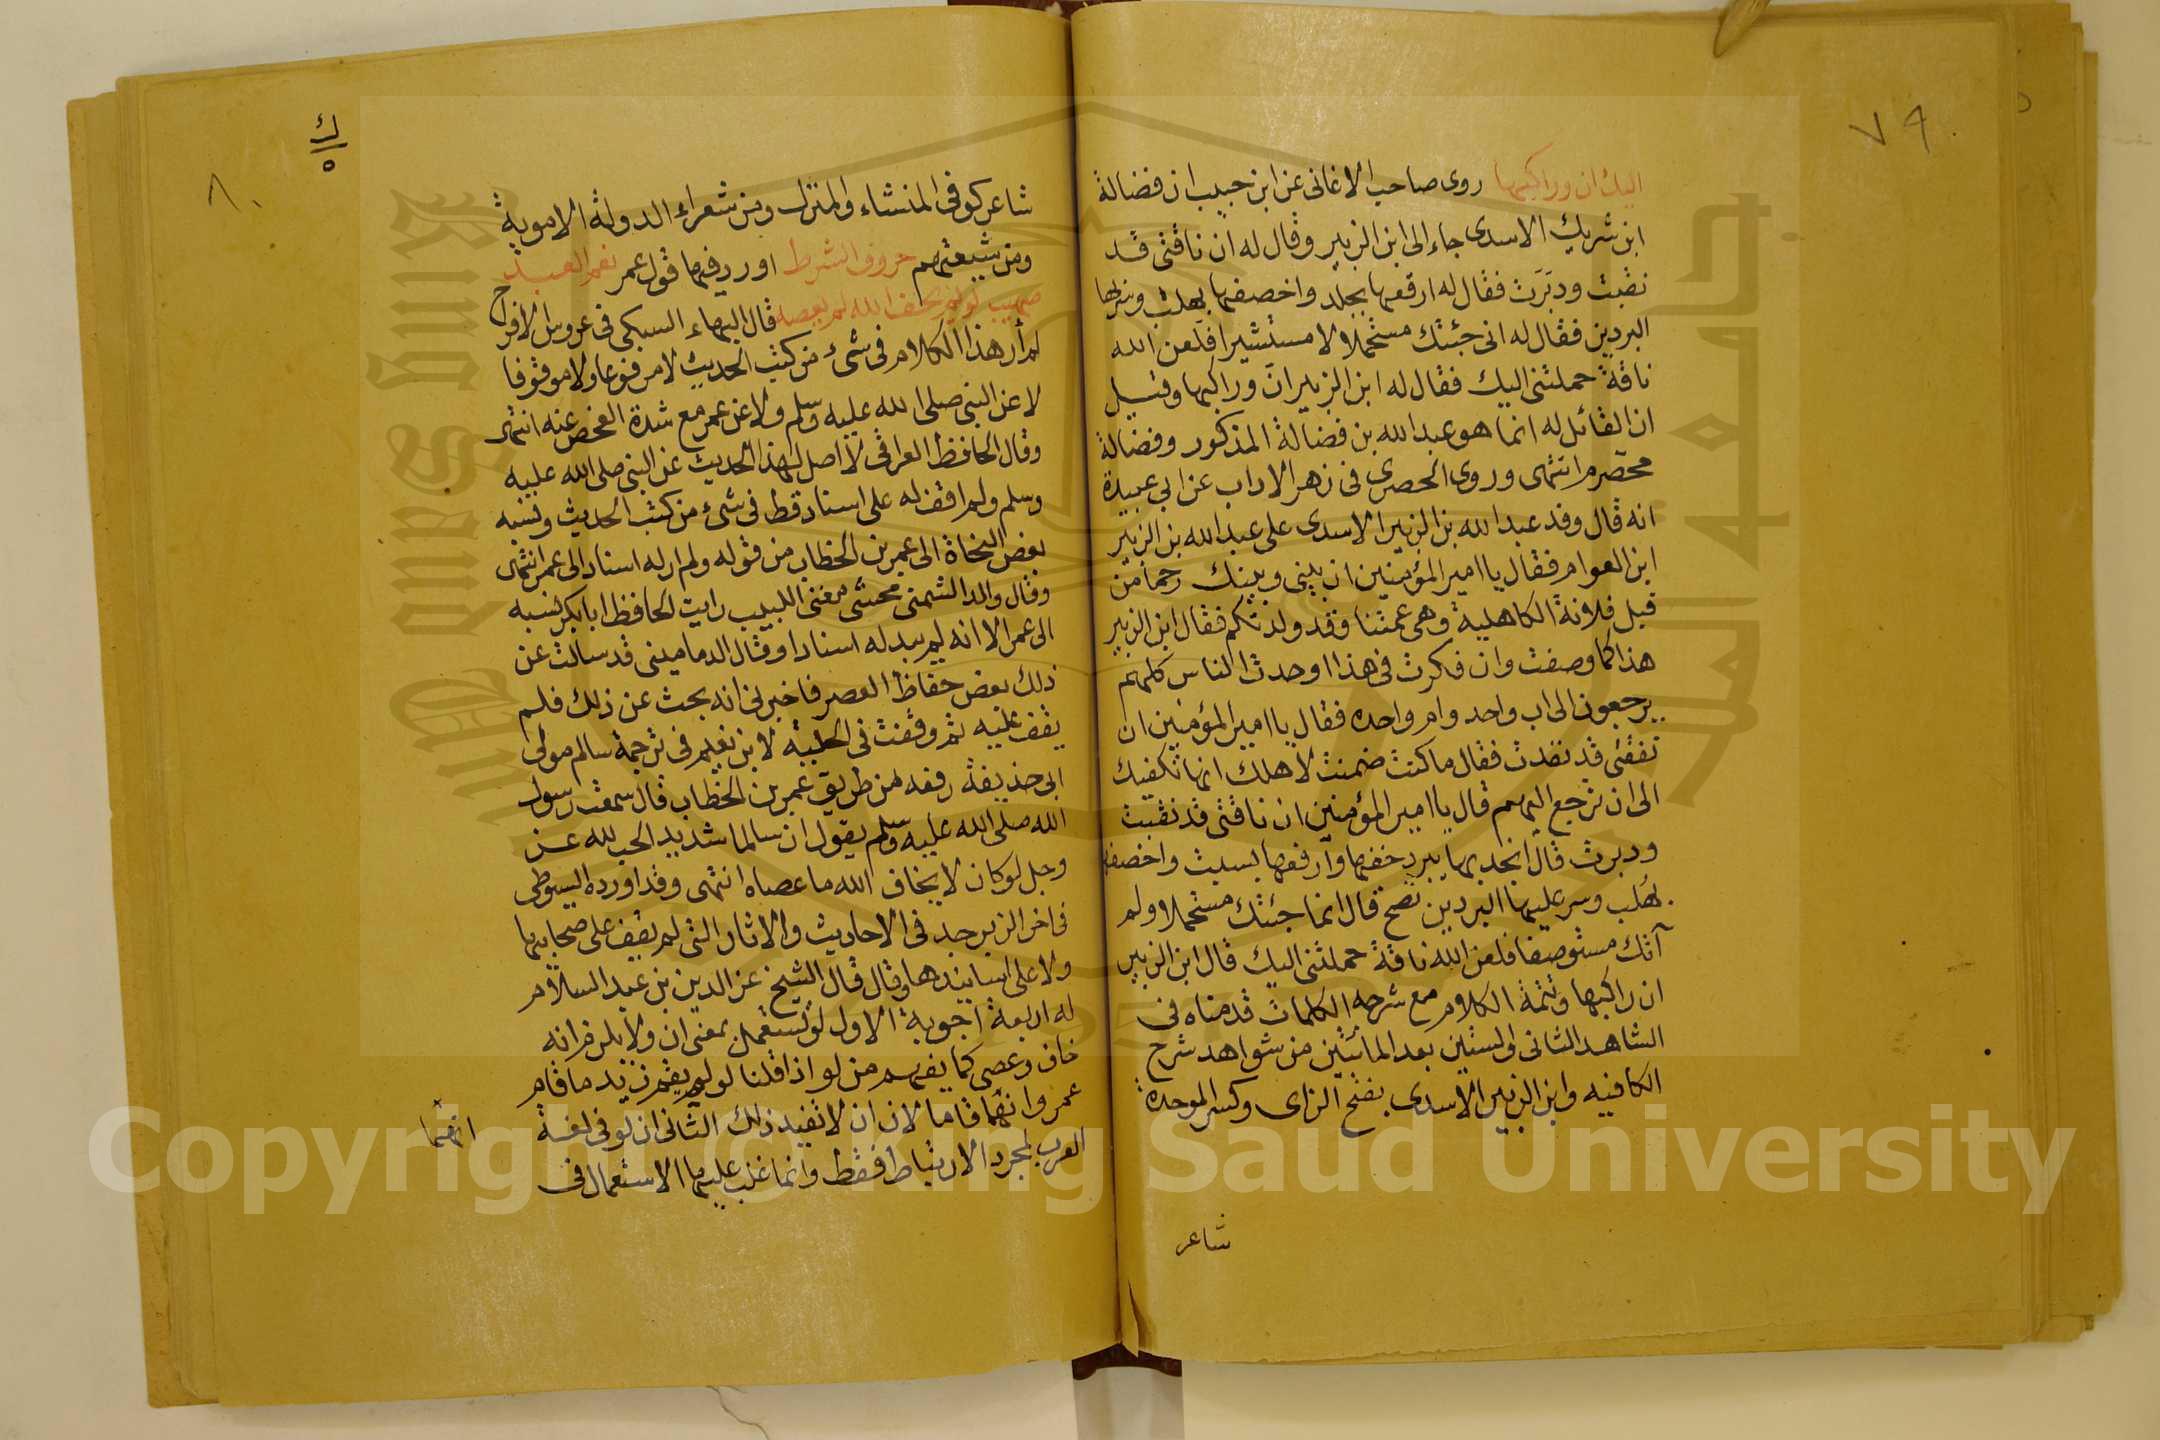 ٧٩
اليك ان وراكبها روى صاحب الاغانى عن ابن حبيب ان فضالة
ابن شريك الاسدى جاء الى ابن الزبير وقال له ان ناقتى قد
نقبت ودبَرَت فقال له ارقعها بجلد واخصفها بهلب وسربها
البردين فقال له انى جئتك مستحملا لا مستشيرا فلعن الله
ناقة حملتنى اليك فقال له ابن الزبير انّ وراكبها وقيل
ان القائل له انما هو عبد الله بن فضالة المذكور وفضالة
مخضرم انتهى وروى الحصرى فى زهر الاداب عن ابى عبيدة
انه قال وفد عبد الله بن الزبير الاسدى على عبد الله بن الزبير
ابن العوام فقال يا امير المؤمنين ان بينى وبينك رحما من
قبل فلانة الكاهلية وهى عمتنا وقد ولدتكم فقال ابن الزبير
هذا كما وصفت وان فكرت فى هذا وحدت الناس كلهم
يرجعون الى اب واحد وام واحده فقال يا امير المؤمنين ان
نفقتى قد نفدت فقال ما كنت ضمنت لاهلك انها تكفيك
الى ان ترجع اليهم قال يا امير المؤمنين ان ناقتى قد نقبت
ودبرت قال انجد بها يبرد خفها وارقعها بسبت واخصفها
بهُلب وسر عليها البردين تصح قال انما جئتك مستحملا ولم
آتك مستوصفا فلعن الله ناقة حملتنى اليك قال ابن الزبير
ان راكبها وتتمة الكلام مع شرحه الكلمات قدمناه فى
الشاهد الثانى والستين بعد المائتين من شواهد شرح
الكافيه وابن الزبير الاسدى بفتح الزاى وكسر الموحدة
شاعر
٨٠
ك
٥
شاعر كوفى المنشاء والمنزل ومن شعراء الدولة الاموية
ومن شيعتهم حروف الشرط اورد فيها قول عمر نعم العبد
صهيب لو لم يخف الله لم يعصه قال البهاء السبكى فى عروس الافراح
لم أر هذا الكلام فى شئ من كتب الحديث لا مرفوعا ولا موقوفا
لا عن النبى صلى الله عليه وسلم ولا عن عمر مع شدة الفحص عنه انتهى
وقال الحافظ العراقى لا اصل لهذا الحديث عن النبى صلى الله عليه
وسلم ولم اقف له على اسناد قط فى شئ من كتب الحديث ونسبه
بعض النحاة الى عمر بن الخطاب من قوله ولم ار له اسناد الى عمر انتهى
وقال والد الشمنى محشى مغنى اللبيب رايت الحافظ ابا بكر نسبه
الى عمر الا انه لم يبد له اسنادا وقال الدمامينى قد سالت عن
ذلك بعض حفاظ العصر فاخبرنى انه بحث عن ذلك فلم
يقف عليه ثم وقفت فى الحلية لابن نعيم فى ترجمة سالم مولى
ابى حذيفة رفعه من طريق عمر بن الخطاب قال سمعت رسول
الله صلى الله عليه وسلم يقول ان سالما شديد الحب لله عز
وجل لو كان لا يخاف الله ما عصاه انتهى وقد اورده السيوطى
فى اخر الزبرجد فى الاحاديث والاثار التى لم يقف على صحابيها
ولا على اسانيدها وقال قال الشيخ عز الدين بن عبد السلام
له اربعة اجوبة الاول لو تستعمل بمعنى ان ولا يلزم انه
خاف وعصى كما يفهم من لو اذا قلنا لو لم يقم زيد ما قام
عمر وانهما قاما لان ان لا تفيد ذلك الثانى ان لو فى لغة
العرب لمجرد الارتباط فقط وانما غلب عليها الاستعمال فى
انهما
Copyright © King Saud University
جامعة الملك سعود
King Saud University
1957